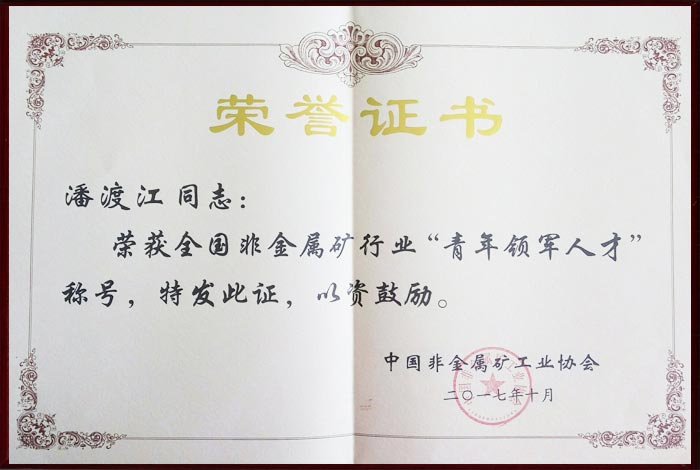 荣誉证书
潘渡江同志：
荣获全国非金属矿行业“青年领军人才”
称号，特发此证，以资鼓励。
中国非金属矿工业协会
二〇一七年十月